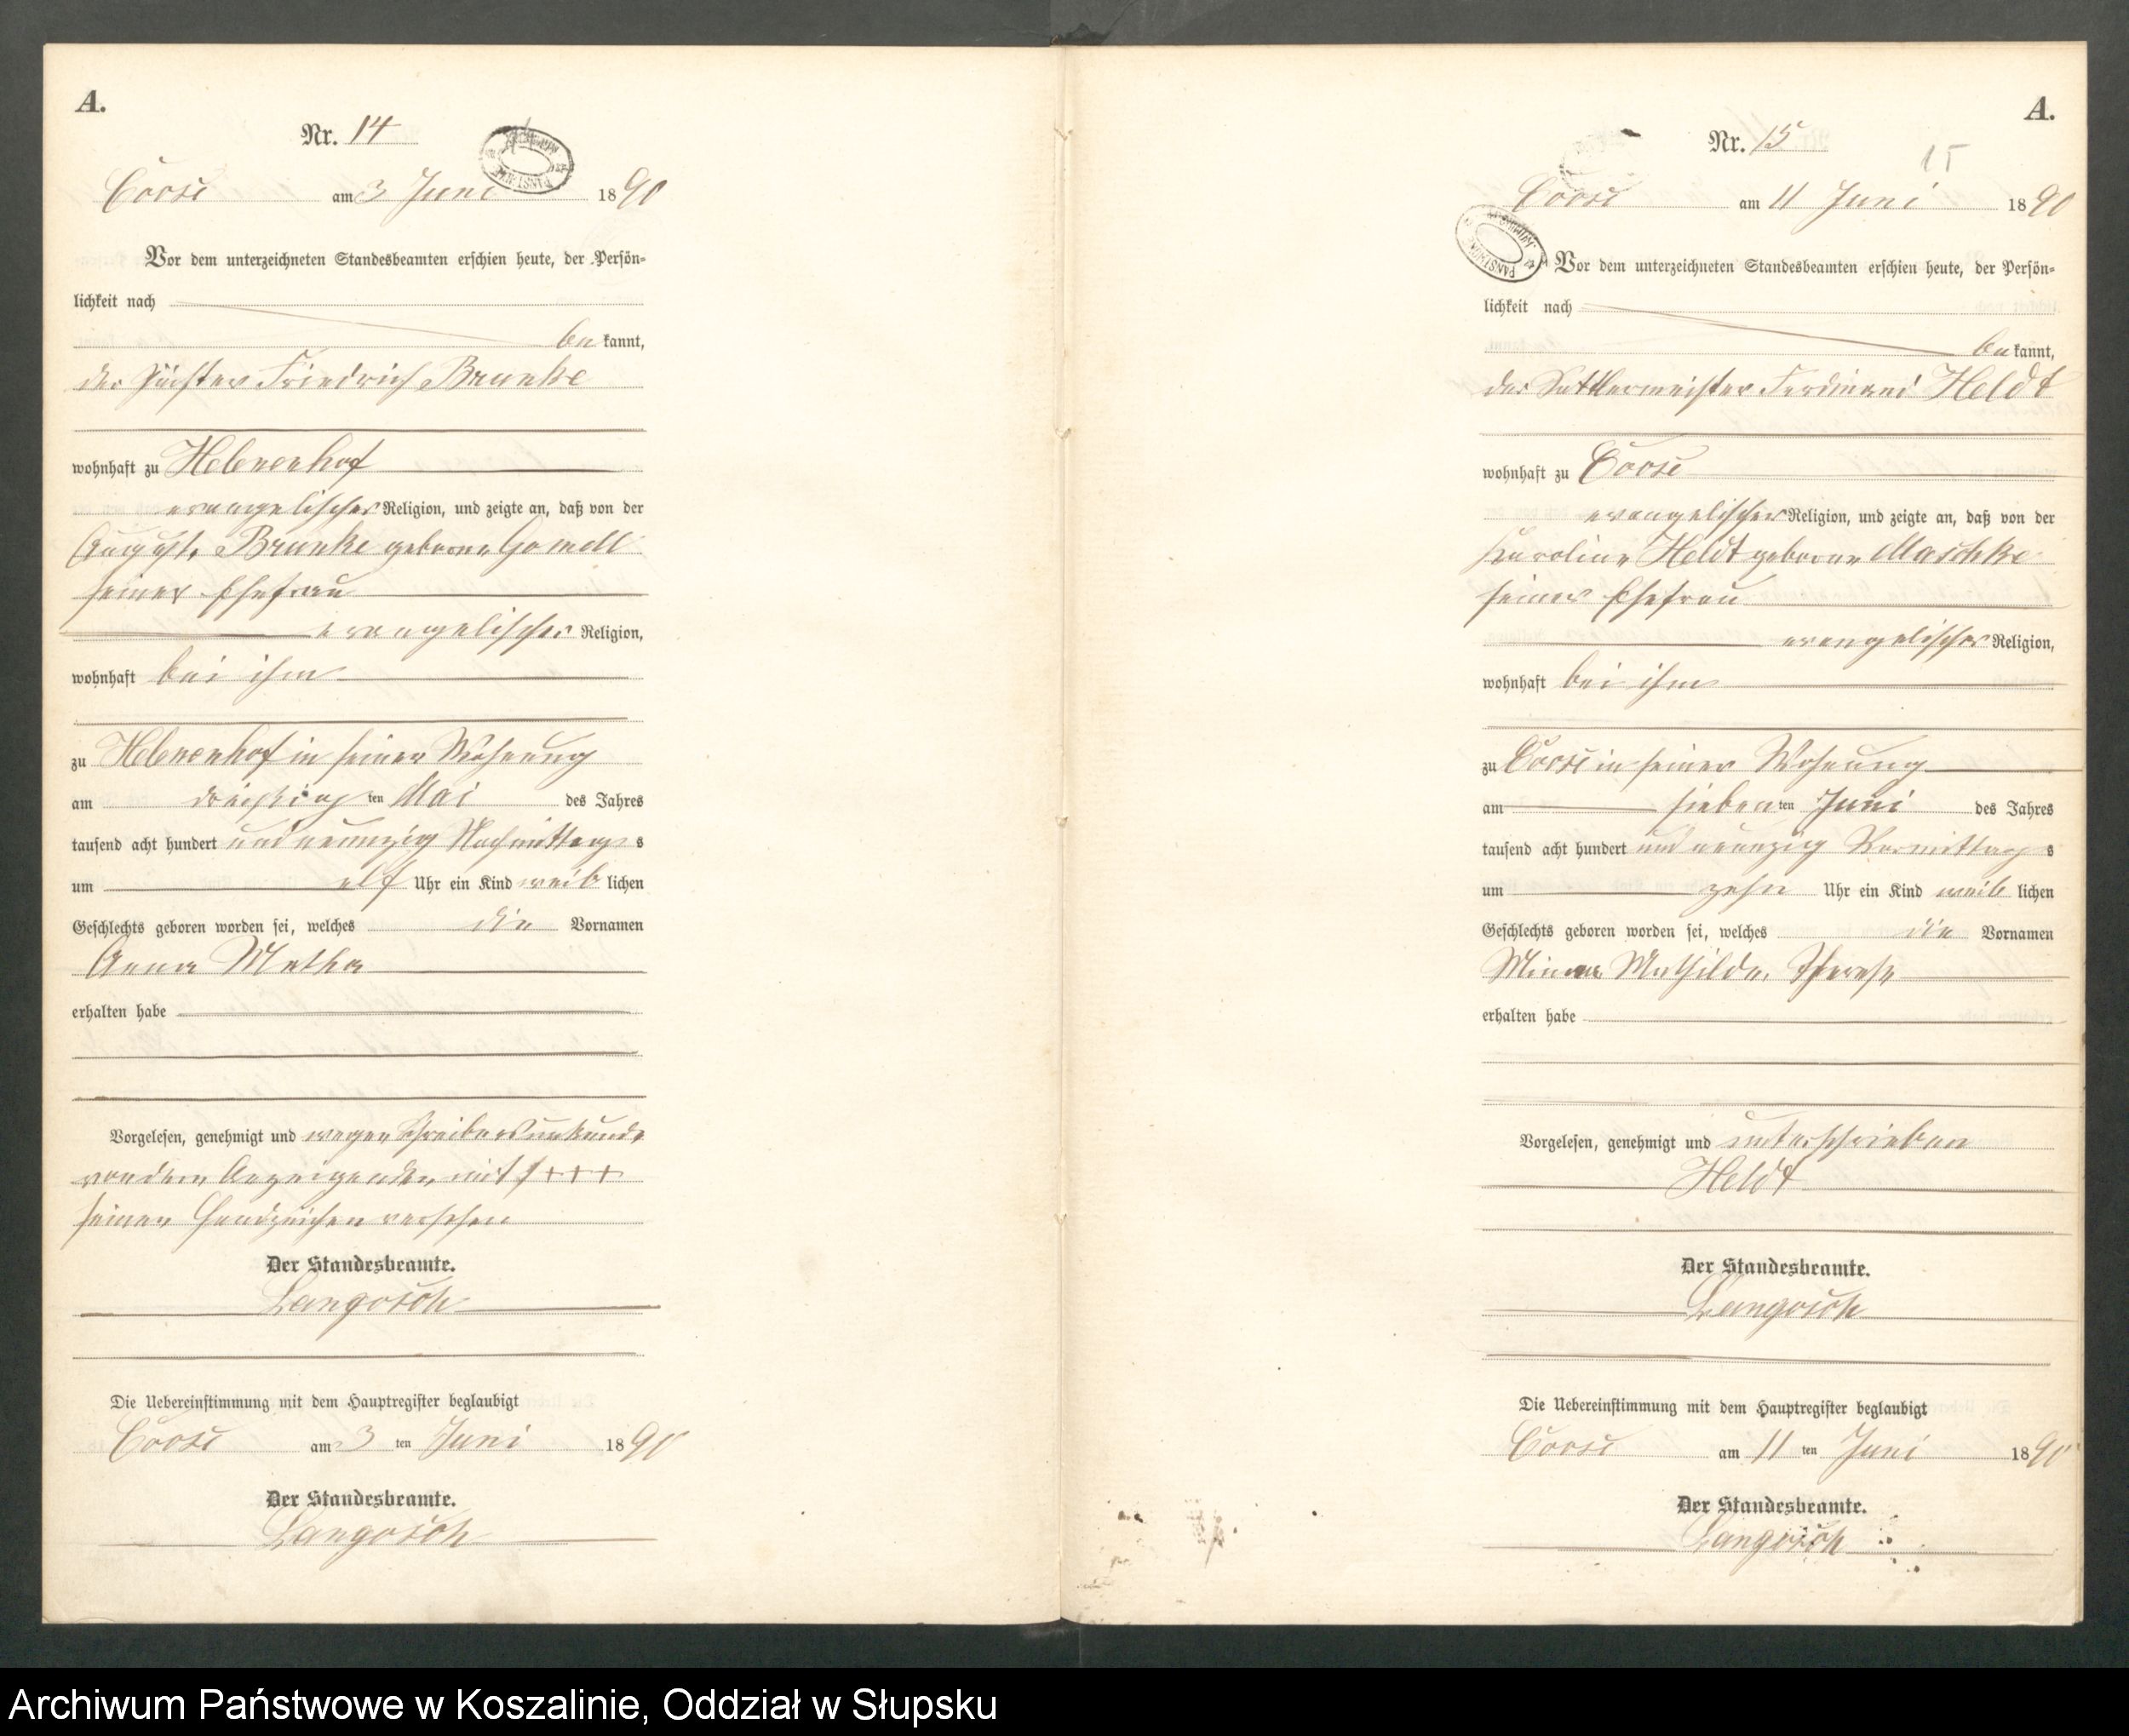 A.
Nr. 14
Coose am 3 Juni 1890
Vor dem unterzeichneten Standesbeamten erschien heute, der Persön=
lichkeit nach
be kannt,
der Pächter Friedrich Brunke
wohnhaft zu Helenenhof
evangelischer Religion, und zeigte an, daß von der
Auguste Brunke geborne
seiner Ehefrau
evangelischer Religion,
wohnhaft bei ihm
zu Helenenhof in seiner Wohnung
am dreißigsten ten Mai des Jahres
tausend acht hundert und neunzig Nachmittag s
um elf Uhr ein Kind weib lichen
Geschlechts geboren worden sei, welches die Vornamen
Anna Metha
erhalten habe
Vorgelesen, genehmigt und wegen Schreibensunkunde
von dem Anzeigenden mit +++
seinen Handzeichen versehen
Der Standesbeamte.
Langosch
Die Uebereinstimmung mit dem Hauptregister beglaubigt
Coose am 3 ten Juni 1890
Der Standesbeamte.
Langosch
A.
Nr. 15
15
Coose am 11 Juni 1890
Vor dem unterzeichneten Standesbeamten erschien heute, der Persön=
lichkeit nach
be kannt,
der Sattlermeister Ferdinand Heldt
wohnhaft zu Coose
evangelischer Religion, und zeigte an, daß von der
Karoline Heldt geborne Maschke
seiner Ehefrau
evangelischer Religion,
wohnhaft bei ihm
zu Coose in seiner Wohnung
am sieben ten Juni des Jahres
tausend acht hundert und neunzig Vormittag s
um zehn Uhr ein Kind weib lichen
Geschlechts geboren worden sei, welches die Vornamen
Minna Mathilde Therese
erhalten habe
Vorgelesen, genehmigt und unterschrieben
Heldt
Der Standesbeamte.
Langosch
Die Uebereinstimmung mit dem Hauptregister beglaubigt
Coose am 11 ten Juni 1890
Der Standesbeamte.
Langosch
Archiwum Państwowe w Koszalinie, Oddział w Słupsku